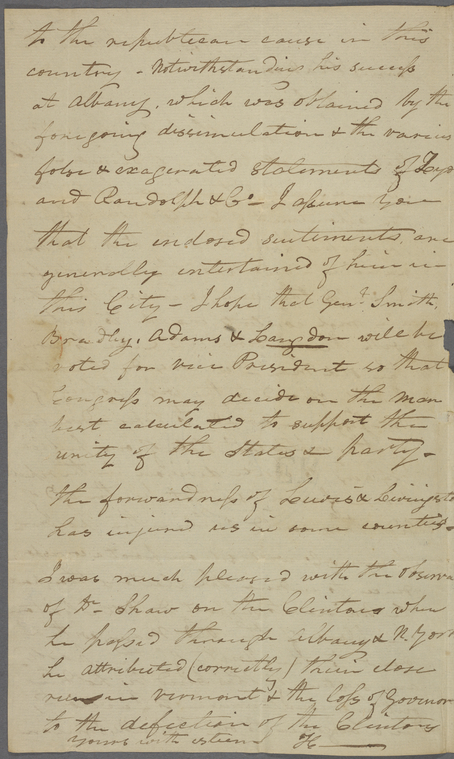 to the republican cause in this
country - Notwithstanding his success
at Albany, which was obtained by the
foregoing dissimulation & the various
false & exagerated statements of
and Randolph & Co - I assure you
that the enclosed sentiments are
generally entertained of him in
this City - I hope that Genl. Smith,
Bradley, Adams & Langdon will be
voted for vice President so that
Congress may decide on the man
best calculated to support the
unity of the States & party -
the forwardness of Lewis & Livingsto
has injured us in some counties.
I was much pleased with the observa
of Dr. Shaw on the Clintons when
he passed through Albany & N. York
he attributed (correctly) their close
run in Vermont & the loss of Governor
to the defection of the Clintons
yours with esteem